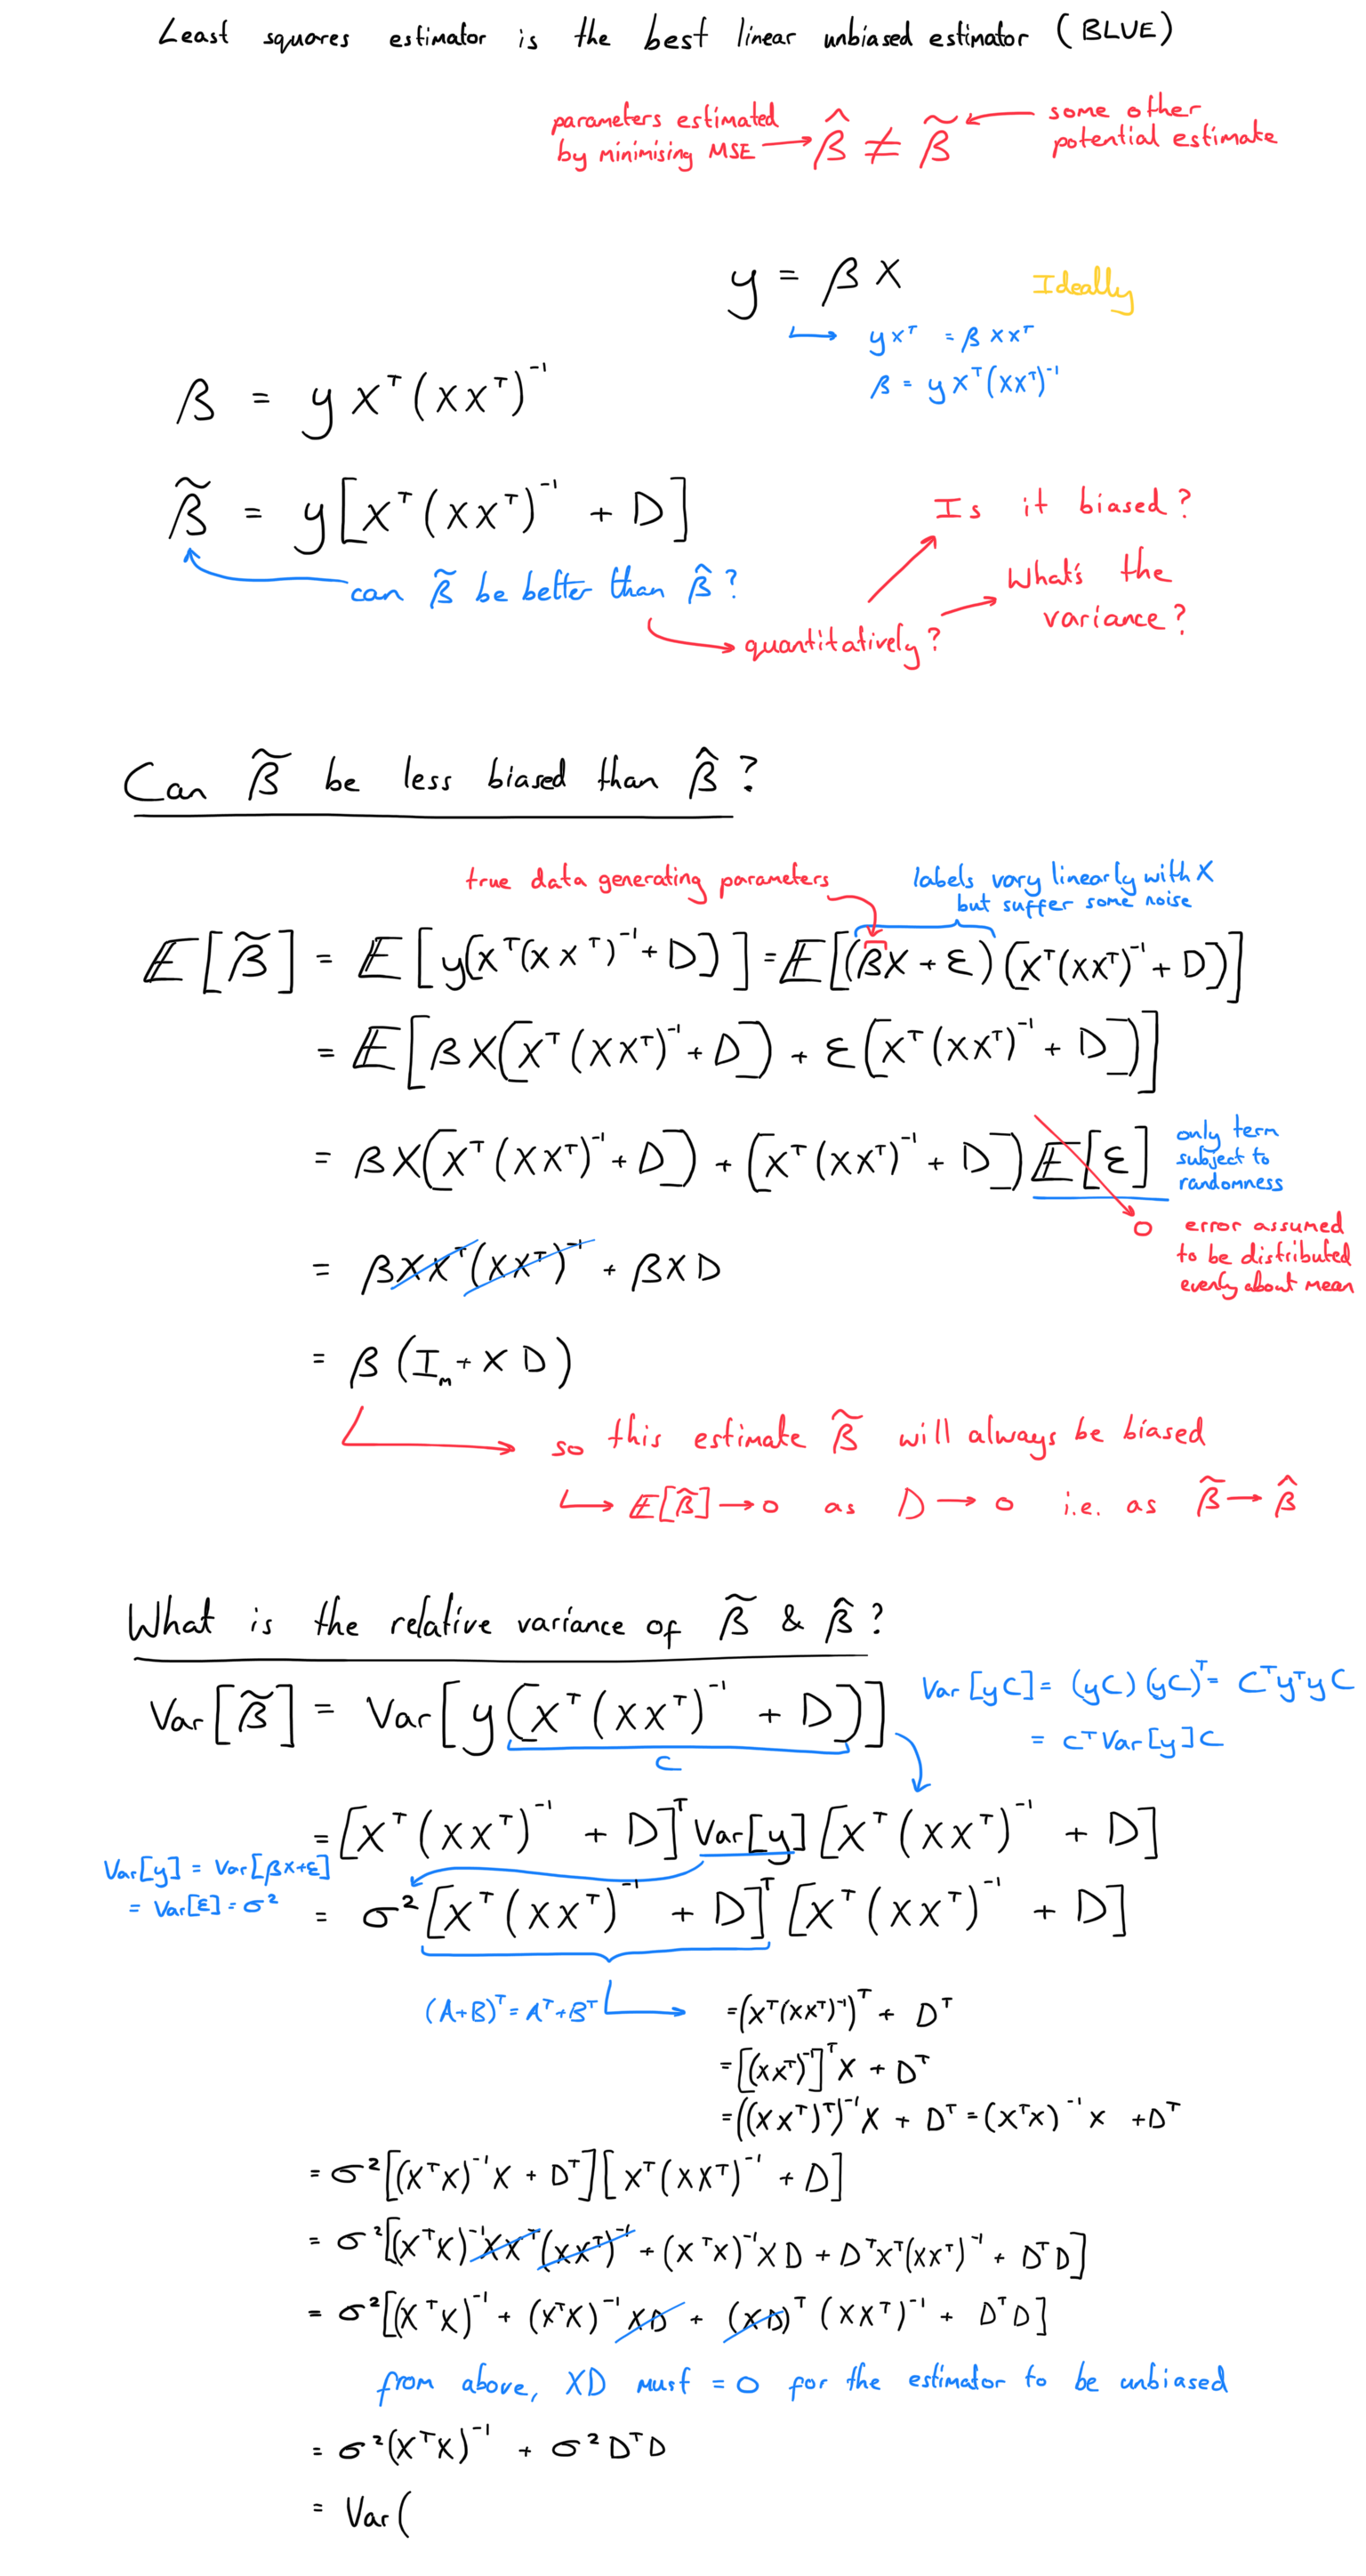 Least squares estimator is the best linear unbiased estimator (BLUE)
parameters estimated
by minimising MSE → β̂ ≠ β̃ ←
some other
potential estimate
y = βX
Ideally
↳ yXᵀ = βXXᵀ
β = yXᵀ(XXᵀ)⁻¹
β = yXᵀ(XXᵀ)⁻¹
β̃ = y[Xᵀ(XXᵀ)⁻¹ + D]
can β̃ be better than β̂?
quantitatively?
Is it biased?
What's the
variance?
Can β̃ be less biased than β̂?
true data generating parameters
labels vary linearly with X
but suffer some noise
E[β̃] = E[y(Xᵀ(XXᵀ)⁻¹+D)] = E[(βX + ε)(Xᵀ(XXᵀ)⁻¹+D)]
= E[βX(Xᵀ(XXᵀ)⁻¹+D) + ε(Xᵀ(XXᵀ)⁻¹+D)]
= βX(Xᵀ(XXᵀ)⁻¹+D) + (Xᵀ(XXᵀ)⁻¹+D)E[ε]
only term
subject to
randomness
0 error assumed
to be distributed
evenly about mean
= βXXᵀ(XXᵀ)⁻¹ + βXD
= β(Iₘ + XD)
→ so this estimate β̃ will always be biased
↳ E[β̃] → 0 as D → 0 i.e. as β̃ → β̂
What is the relative variance of β̃ & β̂?
Var[β̃] = Var[y(Xᵀ(XXᵀ)⁻¹ + D)]
C
Var[yC] = (yC)(yC)ᵀ = CᵀyᵀyC
= CᵀVar[y]C
= [Xᵀ(XXᵀ)⁻¹ + D]ᵀ Var[y] [Xᵀ(XXᵀ)⁻¹ + D]
Var[y] = Var[βX+ε]
= Var[ε] = σ²
= σ²[Xᵀ(XXᵀ)⁻¹ + D]ᵀ [Xᵀ(XXᵀ)⁻¹ + D]
(A+B)ᵀ = Aᵀ+Bᵀ
=(Xᵀ(XXᵀ)⁻¹)ᵀ + Dᵀ
=[(XXᵀ)⁻¹]ᵀX + Dᵀ
=((XXᵀ)ᵀ)⁻¹X + Dᵀ = (XᵀX)⁻¹X + Dᵀ
= σ²[(XᵀX)⁻¹X + Dᵀ][Xᵀ(XXᵀ)⁻¹ + D]
= σ²[(XᵀX)⁻¹XXᵀ(XXᵀ)⁻¹ + (XᵀX)⁻¹XD + DᵀXᵀ(XXᵀ)⁻¹ + DᵀD]
= σ²[(XᵀX)⁻¹ + (XᵀX)⁻¹XD + (XD)ᵀ(XXᵀ)⁻¹ + DᵀD]
from above, XD must = 0 for the estimator to be unbiased
= σ²(XᵀX)⁻¹ + σ²DᵀD
= Var(